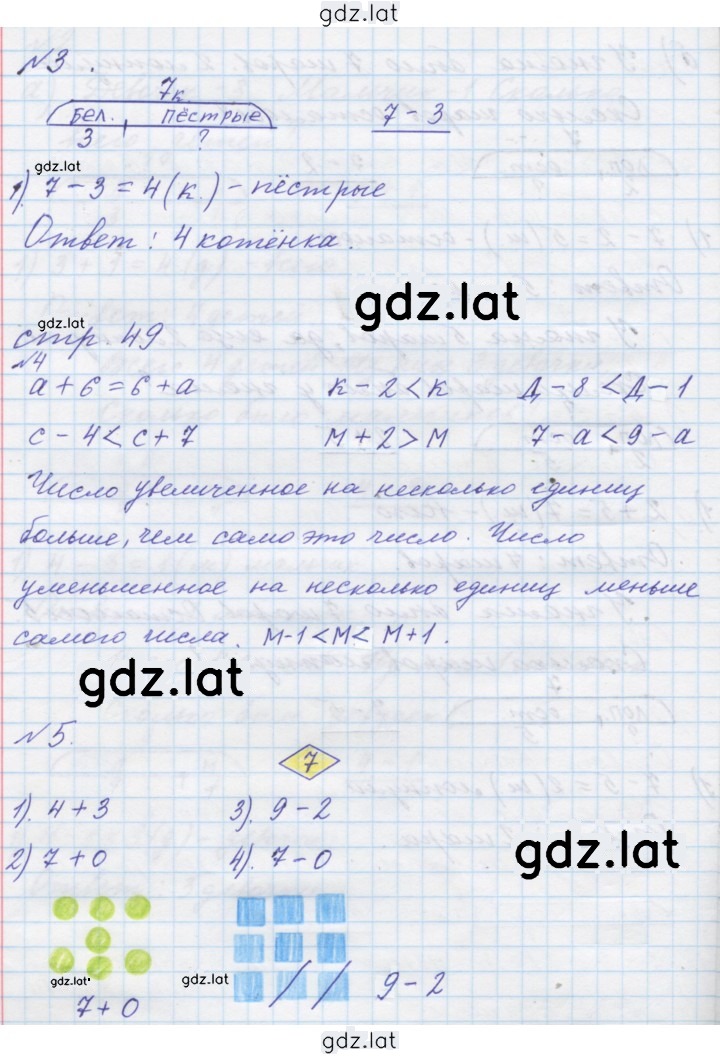 gdz.lat
№3.
7к
бел. пёстрые
3 ?
7-3
gdz.lat
1). 7-3=4(к.)-пёстрые
Ответ: 4 котёнка.
gdz.lat
gdz.lat
стр. 49
№4
а+6=6+а к-2<к д-8<д-1
с-4<с+7 м+2>м 7-а<9-а
Число увеличенное на несколько единиц
больше, чем само это число. Число
уменьшенное на несколько единиц меньше
самого числа. м-1<м<м+1.
gdz.lat
№5.
7
1). 4+3 3). 9-2
2) 7+0 4). 7-0
gdz.lat
gdz.lat gdz.lat
7+0 9-2
gdz.lat